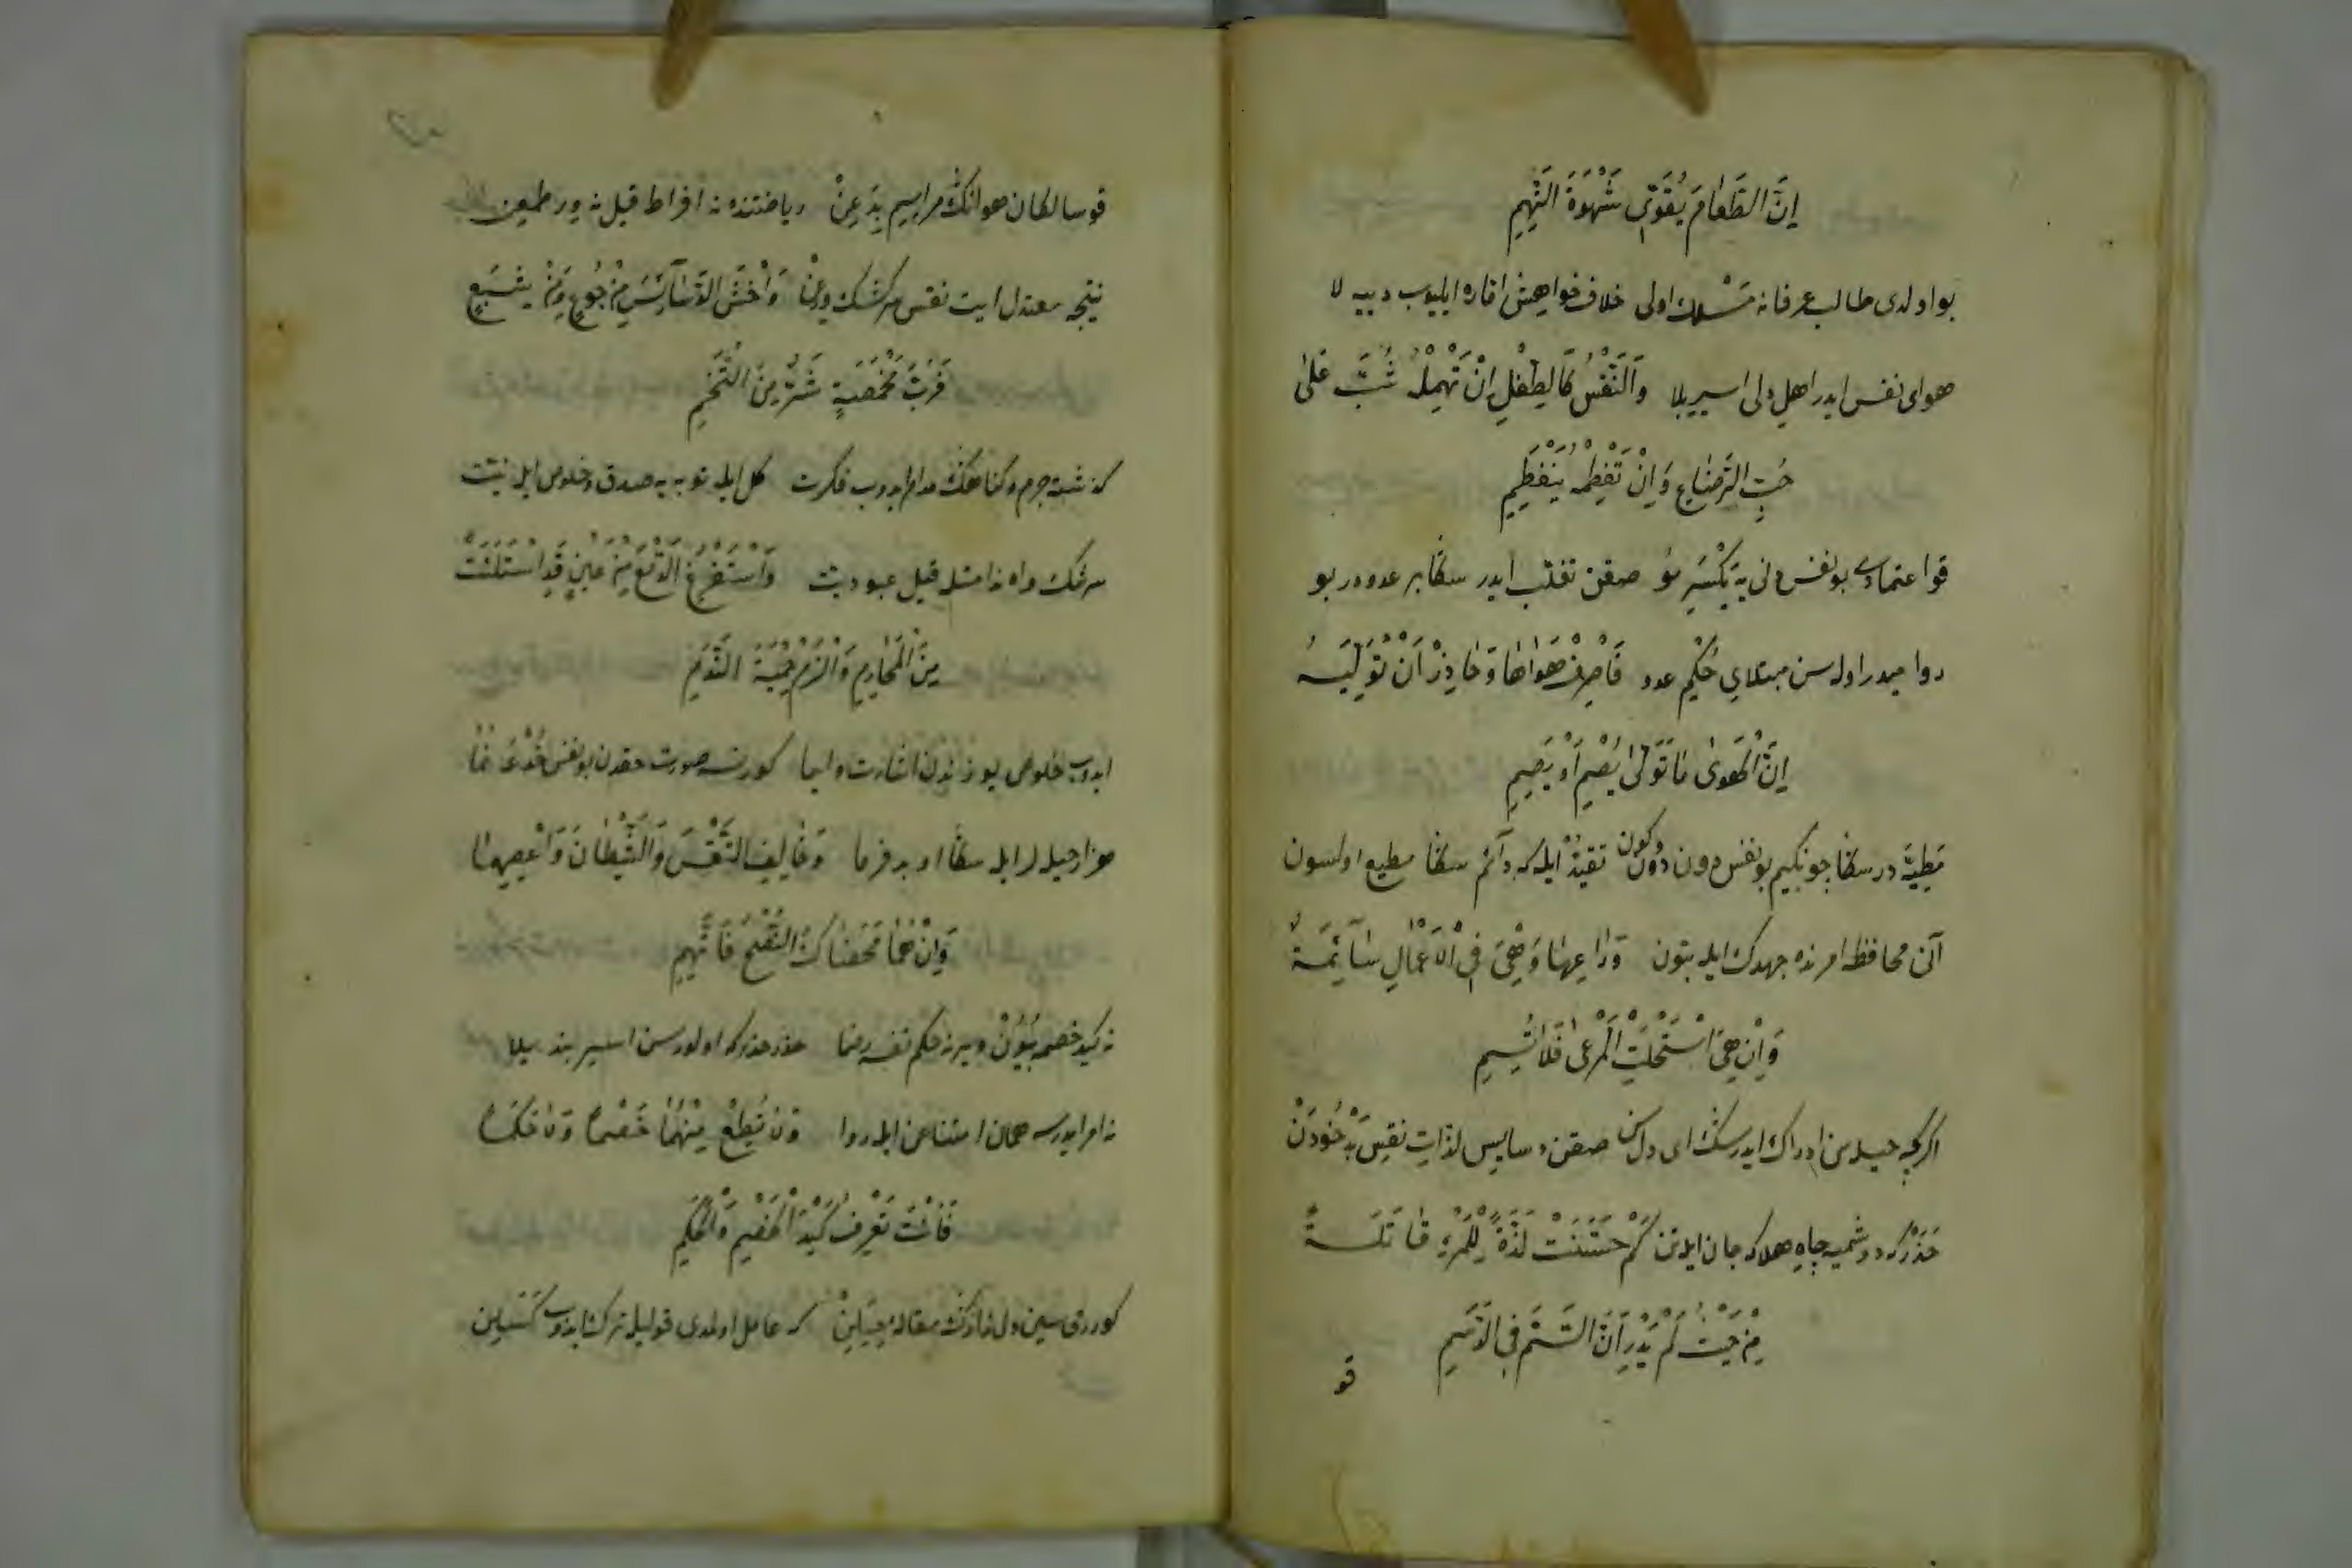 إِنَّ الطَّعَامَ يُقَوِّي شَهْوَةَ النَّهِمِ
بو اولدى طالب عرفانه مسلك اولى خلاف خواهش اماره ايليوب دييه لا
هواى نفس ايدر اهل دلى اسير بلا وَالنَّفْسُ كَالطِّفْلِ اِنْ تُهْمِلْهُ شَبَّ عَلٰى
حُبِّ الرَّضَاعِ وَاِنْ تَفْطِمْهُ يَنْفَطِمِ
قو اعتمادى بو نفس دنى يه يكسر مو صقن تغلب ايدر سكا بر عدودر بو
روا ميدر اوله سن مبتلاى حكم عدو فَاصْرِفْ هَوَاهَا وَحَاذِرْ اَنْ تُوَلِّيَهُ
اِنَّ الْهَوٰى مَا تَوَلّٰى يُصْمِ اَوْ يَصِمِ
مطيه در سكا چونكيم بو نفس دون دون وكون تقيد ايله كه دآئم سكا مطيع اولسون
آنى محافظه امرنده جهدك ايله بتون وَرَاعِهَا وَهْيَ فِي الْاَعْمَالِ سَآئِمَةٌ
وَاِنْ هِيَ اسْتَحْلَتِ الْمَرْعٰى فَلَا تُسِمِ
اكرچه حيله سن ادراك ايدرسك اى دل سن صقن دسايس لذات نفس بد خودن
حذر كه دوشميه چاه هلاكه جان ايله تن كَمْ حَسَّنَتْ لَذَّةً لِلْمَرْءِ قَاتِلَةً
مِنْ حَيْثُ لَمْ يَدْرِ اَنَّ السَّمَّ فِي الدَّسَمِ
قو
قو سالكان هوانك مراسيم بد عن رياضتنده نه افراط قيل نه ور طمعن
نتيجه معتدل ايت نفس سركشك وَاخْشَ الدَّسَآئِسَ مِنْ جُوعٍ وَمِنْ شِبَعٍ
فَرُبَّ مَخْمَصَةٍ شَرٌّ مِنَ التُّخَمِ
كذشته جرم وكناهك مدام ايدوب فكرت كل ايله توبه يه صدق وخلوص ايله نيت
سرشك واه ندامتله قيل عبوديت وَاسْتَفْرِغِ الدَّمْعَ مِنْ عَيْنٍ قَدِ امْتَلَئَتْ
مِنَ الْمَحَارِمِ وَالْزَمْ حِمْيَةَ النَّدَمِ
ايدوب خلوص يوزندن اشارت وايما كورنسه صورت حقدن بو نفس خدعه نما
هزار حيله لر ايله سكا او بد فرما وَخَالِفِ النَّفْسَ وَالشَّيْطَانَ وَاعْصِهِمَا
وَاِنْ هُمَا مَحَضَاكَ النُّصْحَ فَاتَّهِمِ
نه كيد خصمه بيون وير نه حكم نفسه رضا حذر حذر كه اولورسن اسير بند بلا
نه امر ايدرسه همان امتناعن ايله روا وَلَا تُطِعْ مِنْهُمَا خَصْمًا وَلَا حَكَمًا
فَاَنْتَ تَعْرِفُ كَيْدَ الْخَصْمِ وَالْحَكَمِ
كوردى سين دل نادانك مقاله كه عامل اولمدى قوليله ترك ايدوب كسلن